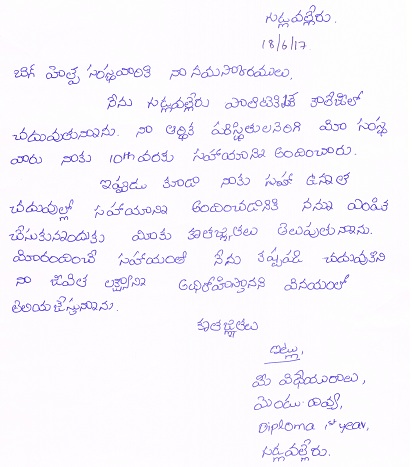 గుడ్లవల్లేరు.
18/6/17
బిగ్ హెల్ప్ సంస్థవారికి నా నమస్కారములు.
నేను గుడ్లవల్లేరు పాలిటెక్నిక్ కాలేజిలో
చదువుతున్నాను. నా ఆర్థిక పరిస్థితులనెరిగి మీ సంస్థ
వారు నాకు 10th వరకు సహాయాన్ని అందించారు.
ఇప్పుడు కూడా నాకు సహా ఉన్నత
చదువుల్లో సహాయాన్ని అందించడానికి నన్ను ఎంపిక
చేసుకున్నందుకు మీకు కృతజ్ఞతలు తెలుపుతున్నాను.
మీరందించే సహాయంతో నేను తప్పక చదువుకుని
నా జీవిత లక్ష్యాన్ని అధిరోహిస్తానని వినయంతో
తెలియచేస్తున్నాను.
కృతజ్ఞతలు
ఇట్లు,
మీ విధేయురాలు,
Diploma 1st year,
గుడ్లవల్లేరు.